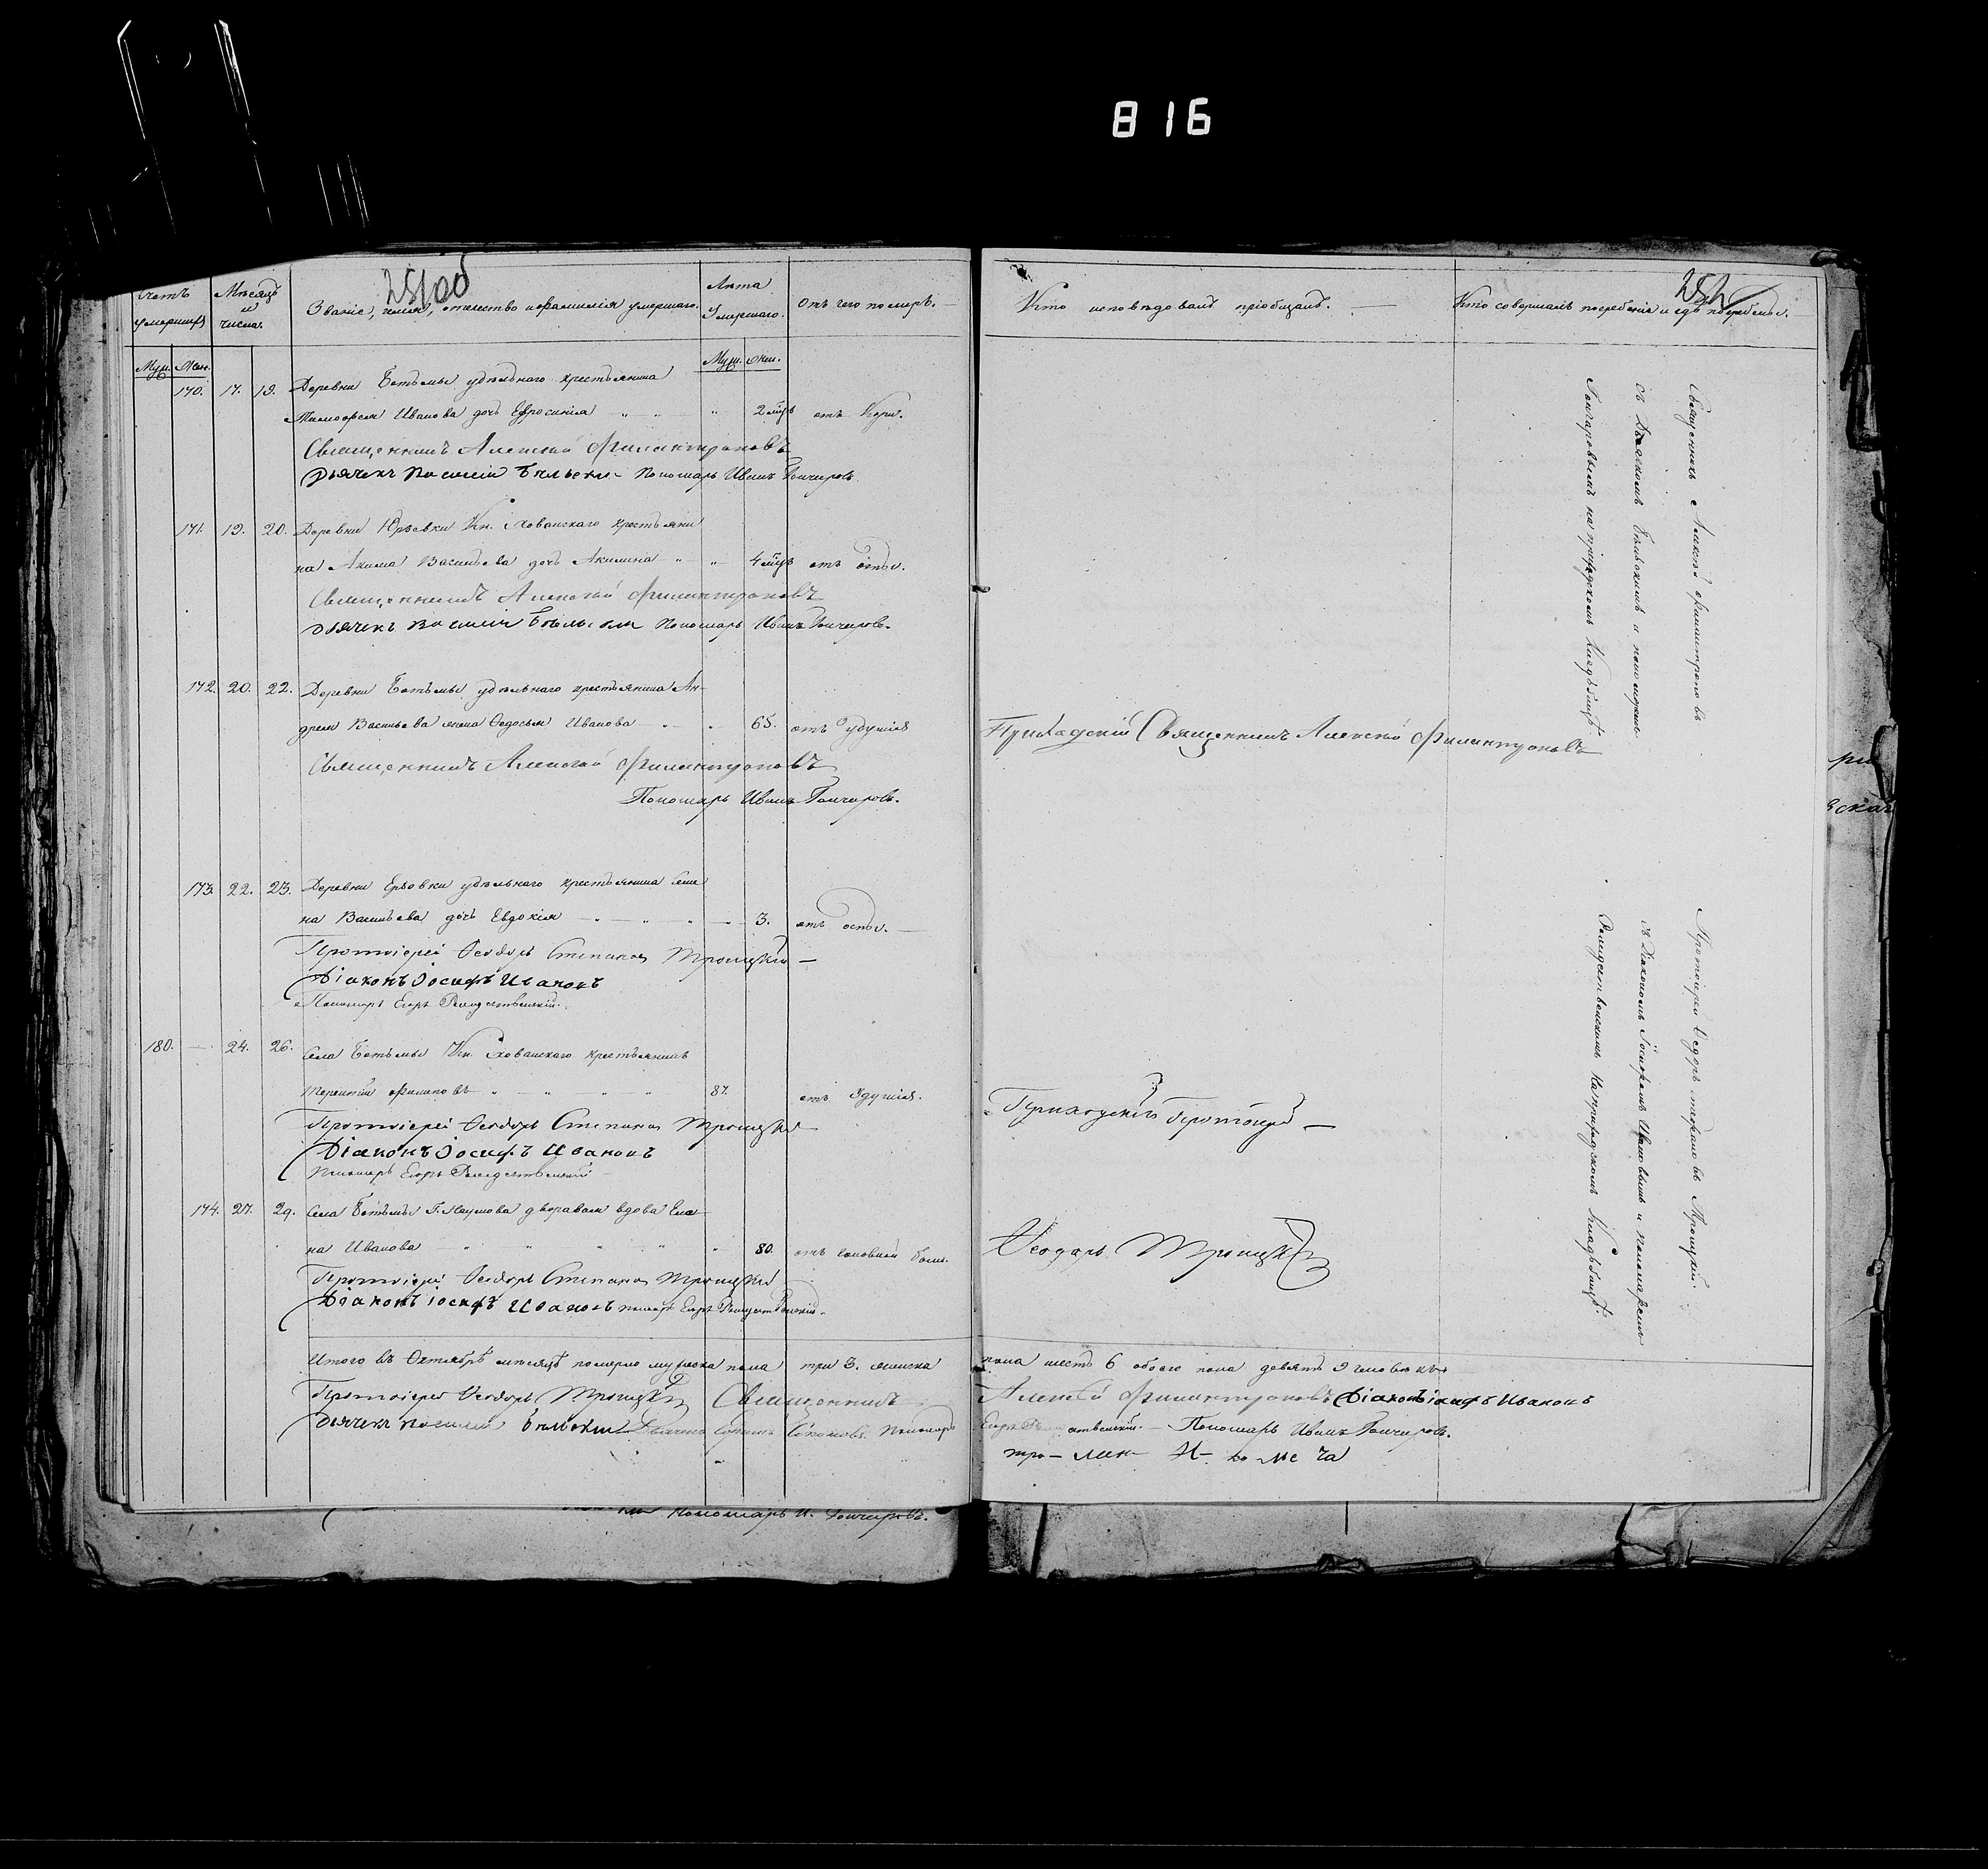 816
251об
252
Счетъ умершихъ
Мѣсяцъ и числа.
Званіе, имя, отчество и фамилія умершаго.
Лѣта Умершаго.
Отъ чего померъ.
Кто исповѣдовалъ и пріобщалъ.
Кто совершалъ погребеніе и гдѣ погребены.
Муж. Жен.
Муж. Жен.
170. 17. 19. Деревни Ботьмы удѣльнаго крестьянина
Тимофея Иванова дочь Ефросинія " " " 2 мѣц. отъ Кори.
Священникъ Алексѣй Филантроповъ
Дьячекъ Василій Бѣльскій Пономарь Иванъ Гончаровъ.
171. 19. 20. Деревни Юрьевки Кн. Хованскаго крестьяни
на Акима Васильева дочь Акилина " " 4 мѣц. отъ оспы.
Священникъ Алексѣй Филантроповъ
Дьячекъ Василій Бѣльскій Пономарь Иванъ Гончаровъ.
172. 20. 22. Деревни Ботьмы удѣльнаго крестьянина Ан-
дрея Васильева жена Ѳедосья Иванова " " 65. отъ удушія
Священникъ Алексѣй Филантроповъ
Пономарь Иванъ Гончаровъ.
Приходскій Священникъ Алексѣй Филантроповъ
173. 22. 23. Деревни Ерзовки удѣльнаго крестьянина Семе
на Васильева дочь Евдокія " " " 3. отъ оспы.
Протоіерей Ѳеодоръ Степановъ Троицкій
Діаконъ Іосифъ Ивановъ
Пономарь Егоръ Рождественскій.
180. — 24. 26. Села Ботьмы Кн. Хованскаго крестьянинъ
Терентій Филиповъ " " " " 87. отъ Удушія.
Протоіерей Ѳеодоръ Степановъ Троицкій
Діаконъ Іосифъ Ивановъ
Пономарь Егоръ Рождественскій
Приходскій Протоіерей
174. 27. 29. Села Ботьмы Г. Наумова дворовая вдова Еле
на Иванова " " " " " 80. отъ головной боли.
Протоіерей Ѳеодоръ Степановъ Троицкій
Діаконъ Іосифъ Ивановъ пономарь Егоръ Рождественскій.
Ѳеодоръ Троицкій
Священникъ Алексѣй Филантроповъ
съ Дьячкомъ Бѣльскимъ и пономаремъ
Гончаровымъ на приходскомъ Кладбищѣ.
Протоіерей Ѳедоръ Троицкій
съ Діакономъ Іосифомъ Ивановымъ и Пономаремъ
Рождественскимъ на приходскомъ Кладбищѣ.
Итого въ Октябрѣ мѣсяцѣ померло мужеска пола три 3. женска пола шесть 6 обоего пола девять 9 человѣкъ
Протоіерей Ѳеодоръ Троицкій Священникъ Алексѣй Филантроповъ Діаконъ Іосифъ Ивановъ
Дьячекъ Василій Бѣльскій Дьячекъ Пономарь Егоръ Рождественскій. Пономарь Иванъ Гончаровъ.
Пономарь И. Гончаровъ.